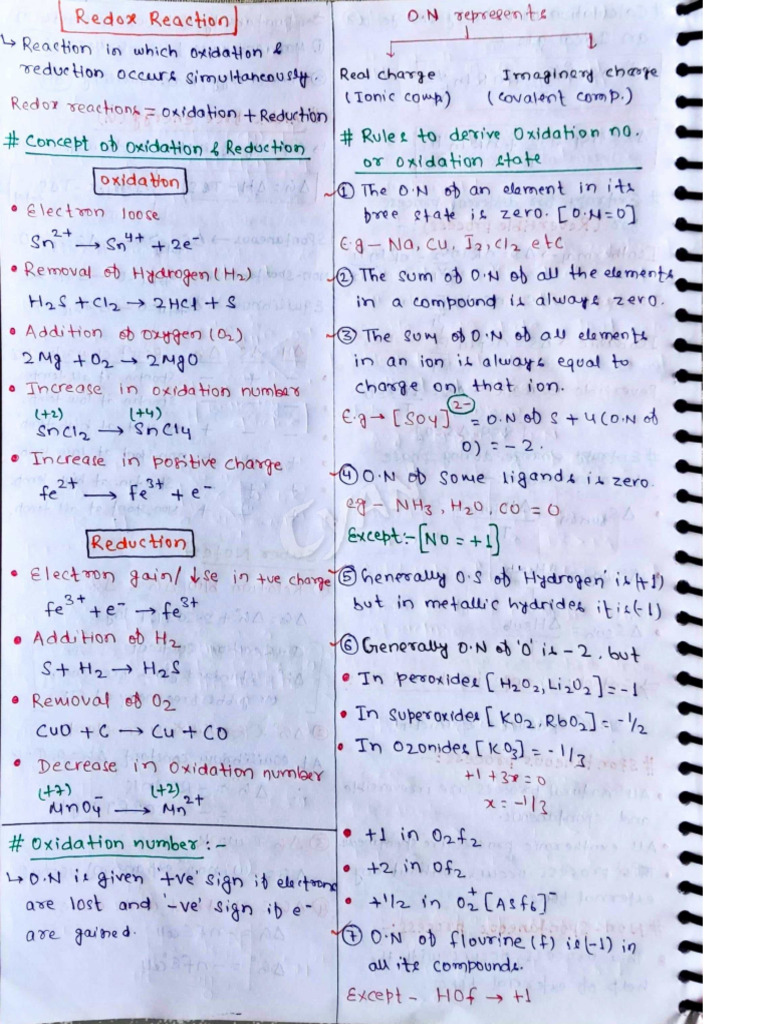 Redox Reaction
↳ Reaction in which oxidation &
reduction occurs simultaneously.
Redox reactions = oxidation + Reduction
# Concept of Oxidation & Reduction
Oxidation
• Electron loose
Sn²⁺ → Sn⁴⁺ + 2e⁻
• Removal of Hydrogen (H₂)
H₂S + Cl₂ → 2HCl + S
• Addition of oxygen (O₂)
2Mg + O₂ → 2MgO
• Increase in oxidation number
(+2) (+4)
SnCl₂ → SnCl₄
• Increase in positive charge
fe²⁺ → fe³⁺ + e⁻
Reduction
• Electron gain/ ↓se in +ve charge
fe³⁺ + e⁻ → fe³⁺
• Addition of H₂
S + H₂ → H₂S
• Removal of O₂
CuO + C → Cu + CO
• Decrease in Oxidation number
(+7) (+2)
MnO₄⁻ → Mn²⁺
# Oxidation number :-
↳ O.N is given '+ve' sign if electrons
are lost and '-ve' sign if e⁻
are gained.
O.N represents
Real charge Imaginary charge
(Ionic comp) (Covalent comp.)
# Rules to derive Oxidation no.
or oxidation state
① The O.N of an element in its
free state is zero. [O.N=0]
E.g – Na, Cu, I₂, Cl₂ etc
② The sum of O.N of all the elements
in a compound is always zero.
③ The sum of O.N of all elements
in an ion is always equal to
charge on that ion.
E.g → [SO₄]²⁻ = O.N of S + 4(O.N of
O) = -2.
④ O.N of some ligands is zero.
eg – NH₃, H₂O, CO = 0
Except:- [NO = +1]
⑤ Generally O.S of 'Hydrogen' is (+1)
but in metallic hydrides it is (-1)
⑥ Generally O.N of 'O' is -2, but
• In peroxides [H₂O₂, Li₂O₂] = -1
• In superoxides [KO₂, RbO₂] = -1/2
• In Ozonides [KO₃] = -1/3
+1 + 3x = 0
x = -1/3
• +1 in O₂f₂
• +2 in Of₂
• +1/2 in O₂⁺[Asf₆]⁻
⑦ O.N of flourine (f) is (-1) in
all its compounds.
Except – HOf → +1